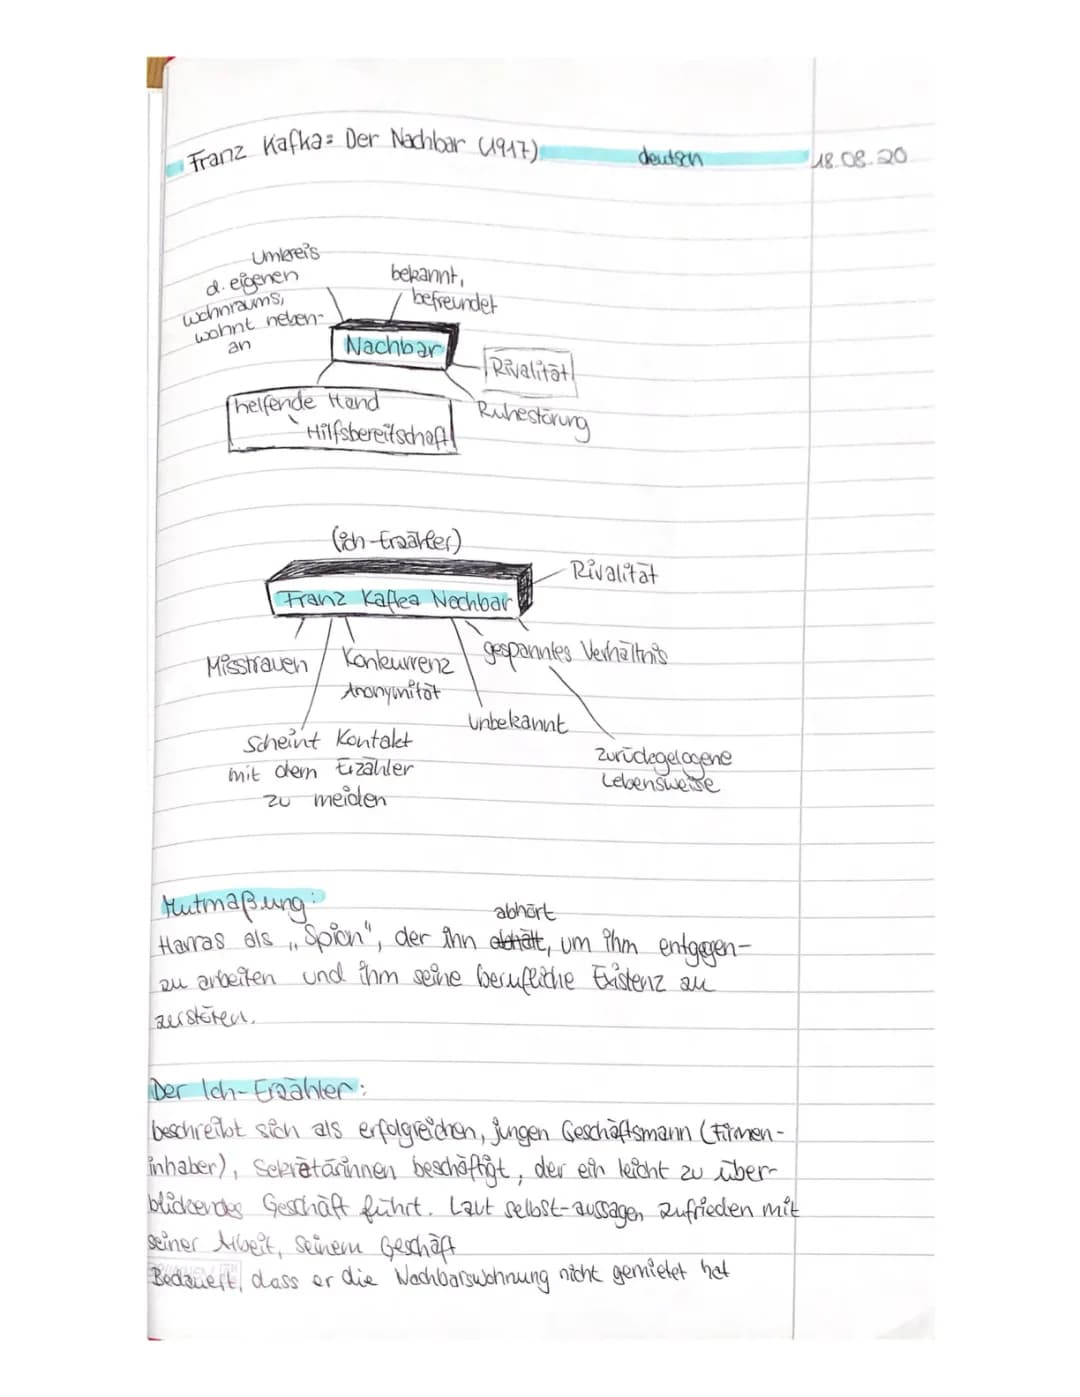 Franz Kafka: Der Nachbar (1917)
deutsch
18.08.20
Umkreis
d. eigenen
wohnraums,
wohnt neben-
an
bekannt,
befreundet
Nachbar
Rivalität
Ruhestörung
helfende Hand
Hilfsbereitschaft
(ich-Erzähler)
Franz Kafka Nachbar
Rivalität
Misstrauen
Konkurrenz
Anonymität
gespanntes Verhältnis
unbekannt
Scheint Kontakt
mit dem Erzähler
zu meiden
zurückgezogene
Lebensweise
Mutmaßung:
abhört
Harras als „Spion", der ihn abhält, um ihm entgegen-
zu arbeiten und ihm seine berufliche Existenz zu
zerstören.
Der Ich-Erzähler:
beschreibt sich als erfolgreichen, jungen Geschäftsmann (Firmen-
inhaber), Sekretärinnen beschäftigt, der ein leicht zu über-
blickendes Geschäft führt. Laut selbst-aussagen zufrieden mit
seiner Arbeit, seinem Geschäft
Bedauert, dass er die Nachbarswohnung nicht gemietet hat